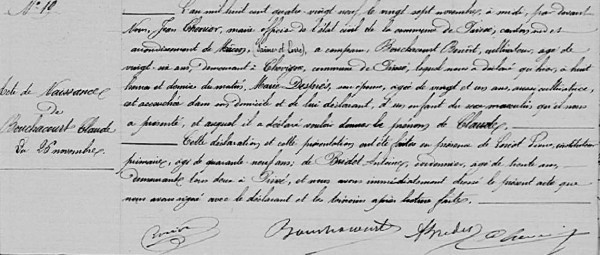 N° 19
Acte de Naissance
de
Bouchacourt Claude
Du 26 novembre
L'an mil huit cent quatre vingt neuf le vingt sept novembre, à midi, par devant
Nous, Jean maire, officier de l'état civil de la commune de Prissé, canton et
arrondissement de Mâcon, (Saône et Loire), a comparu, Bouchacourt Benoît, cultivateur, âgé de
vingt- ans, demeurant à Chevigne, commune de Prissé, lequel nous a déclaré qu'hier, à huit
heures et demie du matin, Marie Desbrés, son épouse, âgée de vingt et un ans, aussi cultivatrice,
est accouchée dans son domicile et de lui déclarant, d'un enfant du sexe masculin qu'il nous
a présenté, et auquel il a déclaré vouloir donner le prénom de Claude.
Cette déclaration et cette présentation ont été faites en présence de Loriot Pierre, instituteur
primaire, âgé de quarante neuf ans, de Bridet Antoine, âgé de trente ans,
demeurants tous deux à Prissé, et nous avons immédiatement dressé le présent acte que
nous avons signé avec le déclarant et les témoins après lecture faite.
Bouchacourt ABridet